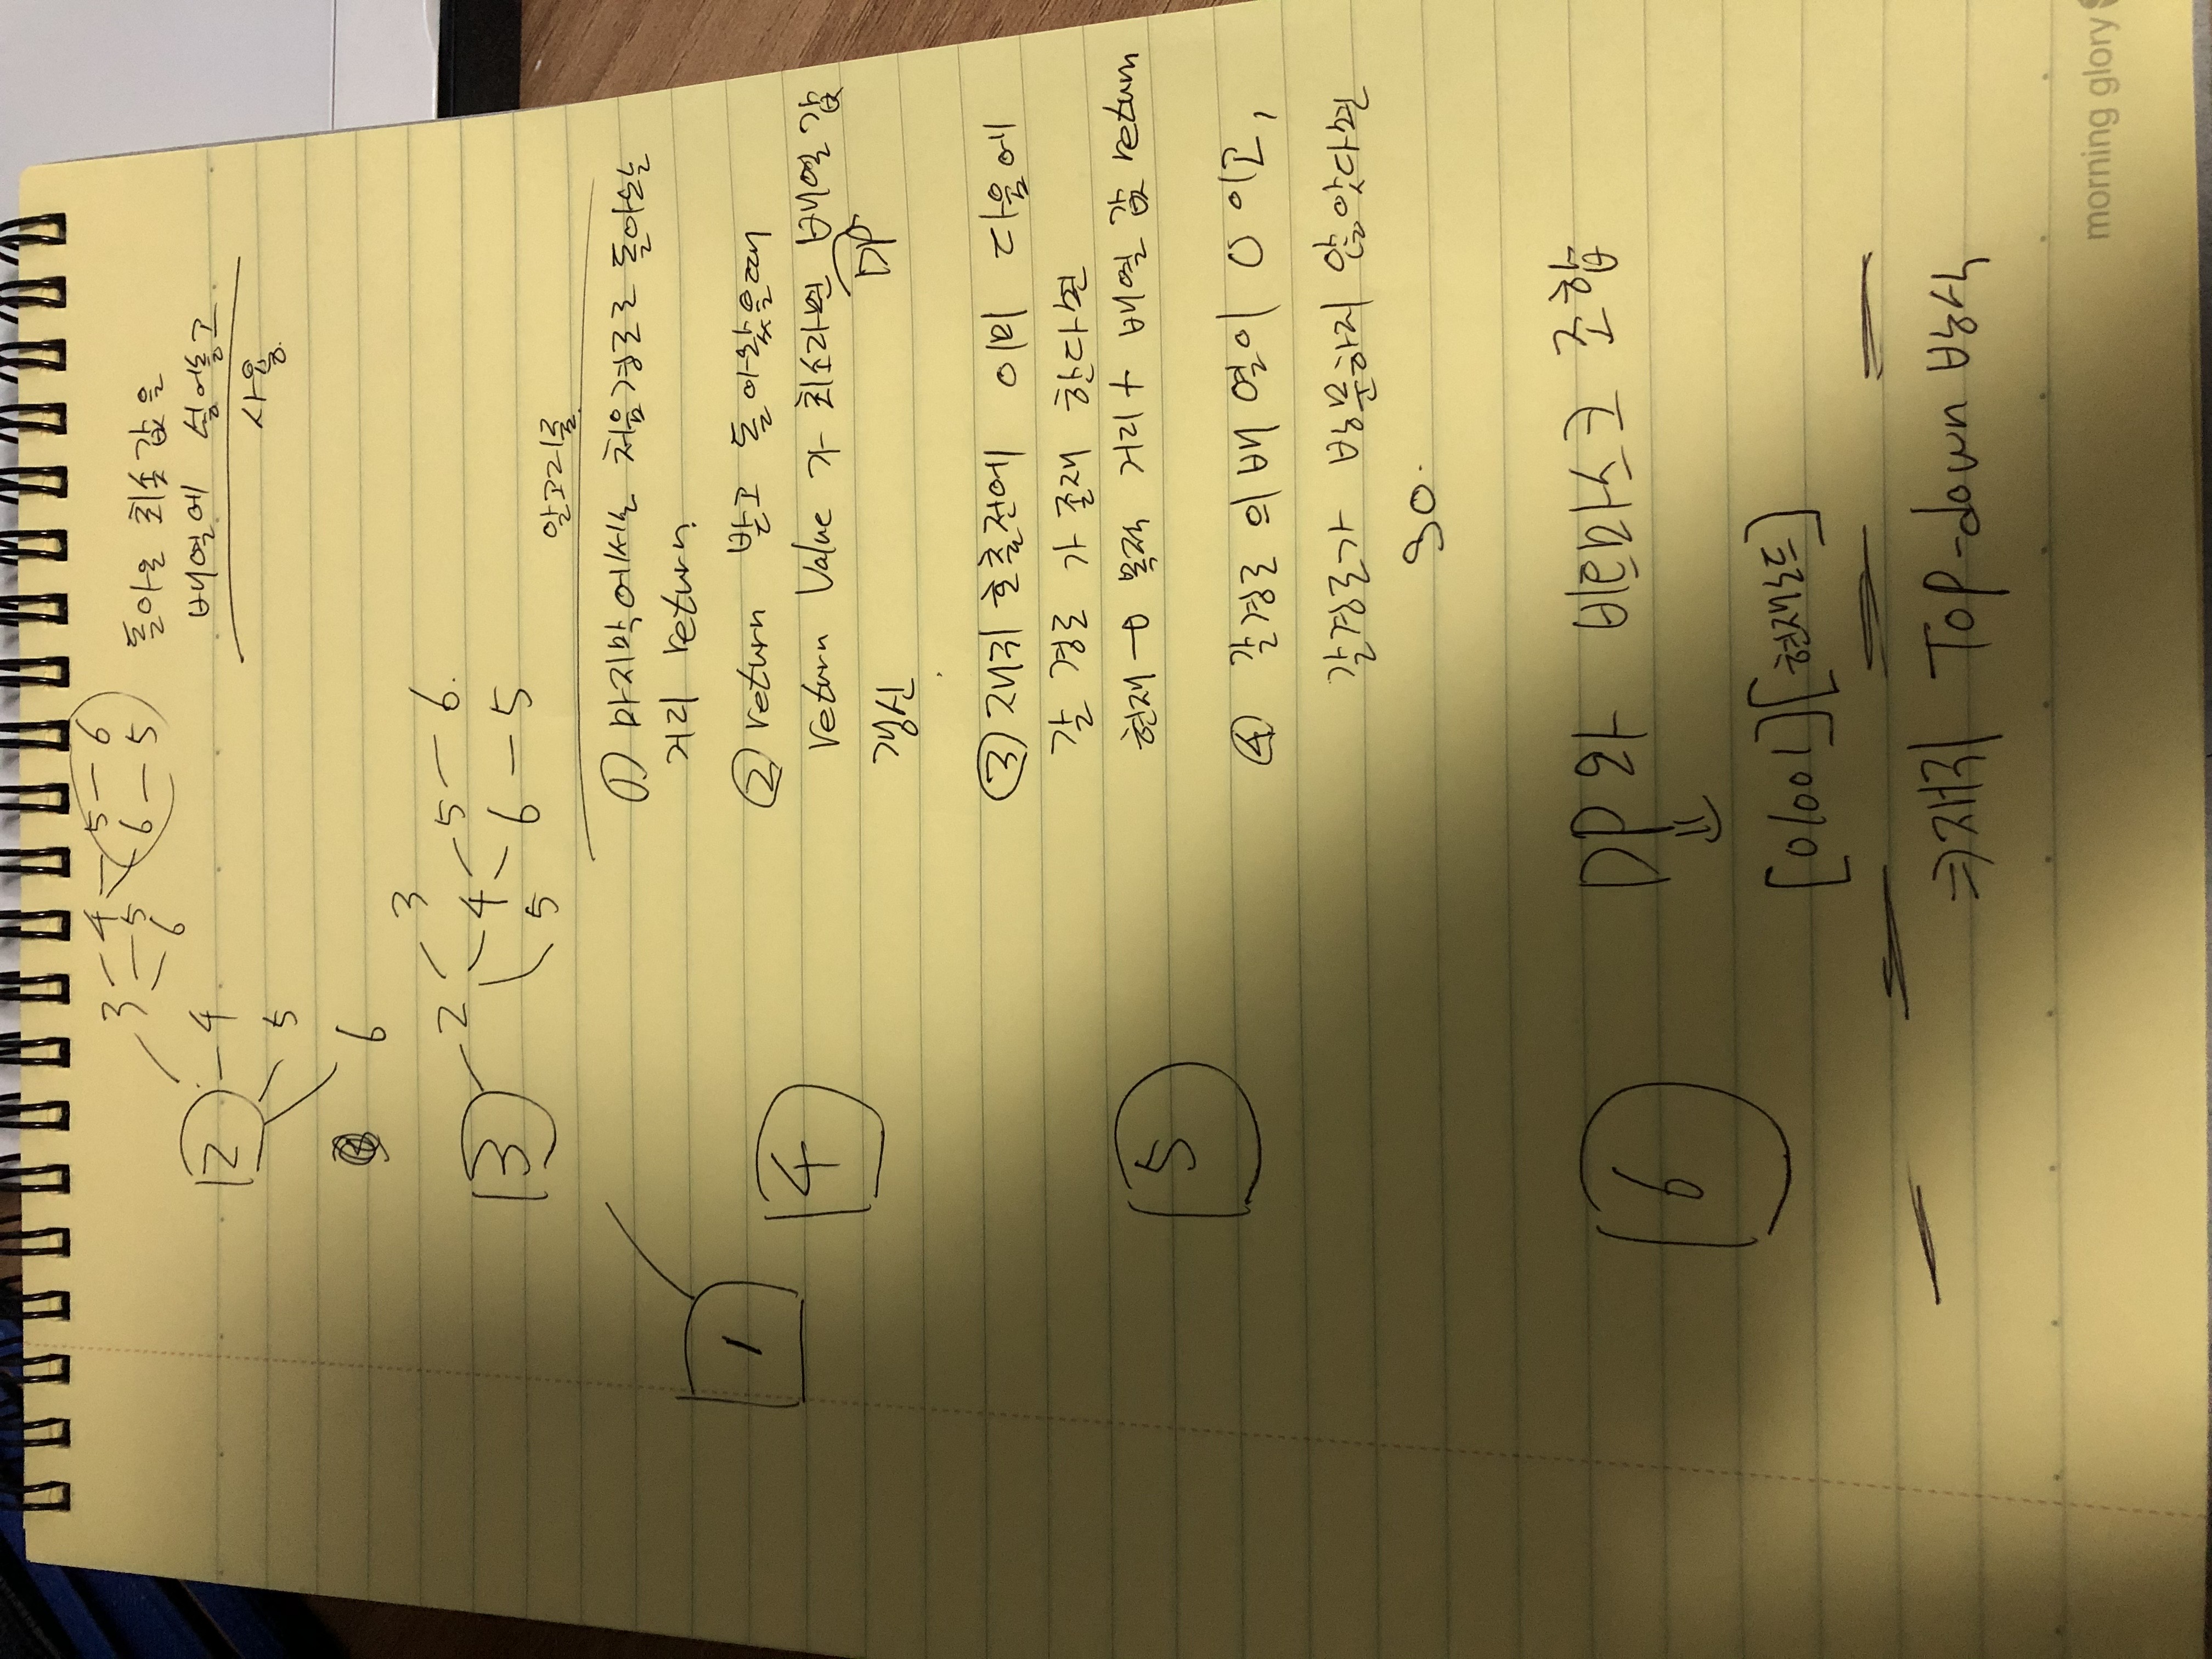 3 - 4 - 5 - 6
- 5 6 - 5
6
2 - 4
5
6
3
2 5 - 6.
3 4
6 - 5
5
돌아온 최솟값을
배열에 넣어놓고
사용.
알고리즘
① 마지막에서는 처음경로로 돌아오는
거리 return.
② return 받고 돌아왔을때
return Value 가 최소라면 배열 값
DP
갱신
③ 재귀 호출전에 이미 다음에
갈 경로 가 존재 한다면
현재 → 목적 거리 + 배열 값 return
④ 갈경로 의 배열이 0 이고,
갈경로가 방문하지 않았다면
go.
1
4
5
6
DP 와 비트마스크 조합
⇓
[01001][현재노드]
⇒ 재귀 Top-down 방식
morning glory